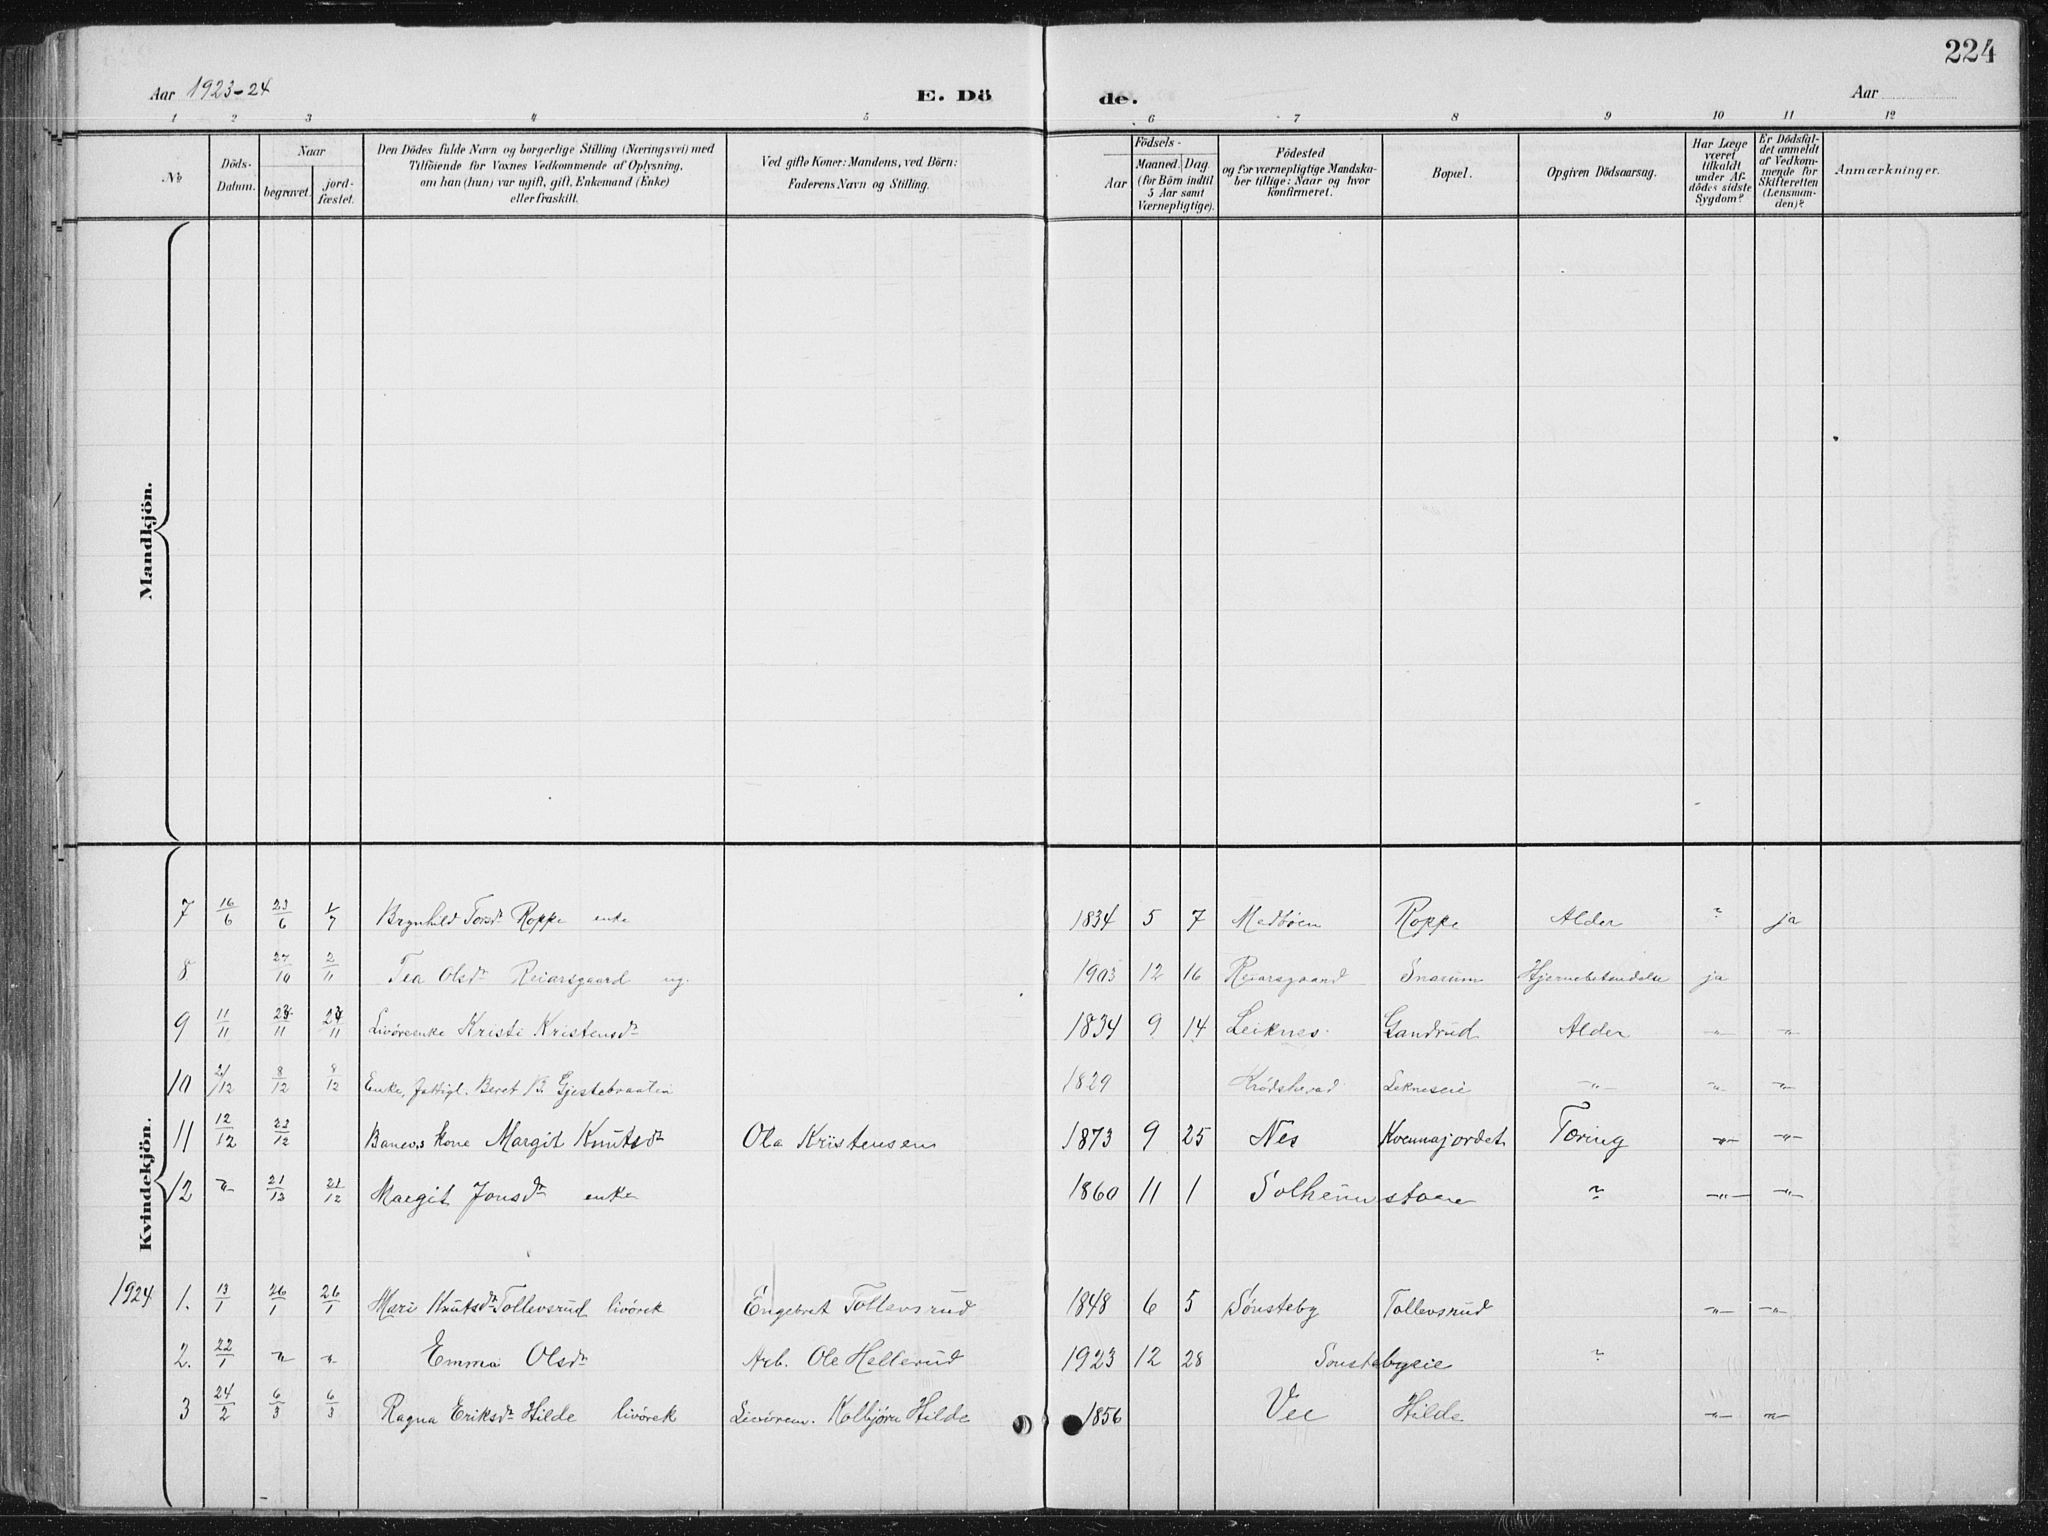 224
Aar 1923-24 E. Dö de. Aar
1 2 3 4 5 6 7 8 9 10 11 12
No
Döds-Datum.
Naar
begravet. jord-fæstet.
Den Dödes fulde Navn og borgerlige Stilling (Næringsvei) med
Tilföiende for Voxnes Vedkommende af Oplysning,
om han (hun) var ugift, gift, Enkemand (Enke)
eller fraskilt.
Ved gifte Koner: Mandens, ved Börn:
Faderens Navn og Stilling.
Födsels-
Aar Maaned. Dag.
(for Börn indtil
5 Aar samt
Værnepligtige).
Födested
og for værnepligtige Mandska-
ber tillige: Naar og hvor
konfirmeret.
Bopæl.
Opgiven Dödsaarsag.
Har Læge
været
tilkaldt
under Af-
dödes sidste
Sygdom?
Er Dödsfal-
det anmeldt
af Vedkom-
mende for
Skifteretten
(Lensman-
den)?
Anmærkninger.
Mandkjön.
Kvindekjön.
7 16/6 23/6 1/7 Brynhild Torsdr Roppe enke 1834 5 7 Medbøen Roppe Alder " ja
8 27/10 2/11 Tea Olsdr Reiarsgaard ug. 1903 12 16 Reiarsgaard Snarum Hjernebetendelse ja
9 11/11 23/11 23/11 Livøreenke Kristi Kristensdr 1834 9 14 Leiknes Gandrud Alder -"- -"-
10 2/12 8/12 8/12 Enke, fattigl. Beret B. Gjestebraaten 1829 Krødsherad Lekneseie -"- -"- -"-
11 12/12 22/12 Banev.s kone Margit Knutsdr Ola Kristensen 1873 9 25 Nes Kvennajordet Tæring -"- -"-
12 -"- 21/12 21/12 Margit Jonsdr enke 1860 11 1 Solheimstoen " -"- -"-
1924 1. 13/1 26/1 26/1 Mari Knutsdr Tollevsrud livörek Engebret Tollevsrud 1848 6 5 Sønsteby Tollevsrud -"- -"-
2. 22/1 -"- -"- Emma Olsdr Arb. Ole Hellerud 1923 12 28 Sønstebyeie "
3 24/2 6/3 6/3 Ragna Eriksdr Hilde livörek Livörem. Kolbjörn Hilde 1856 Vee Hilde -"- -"-